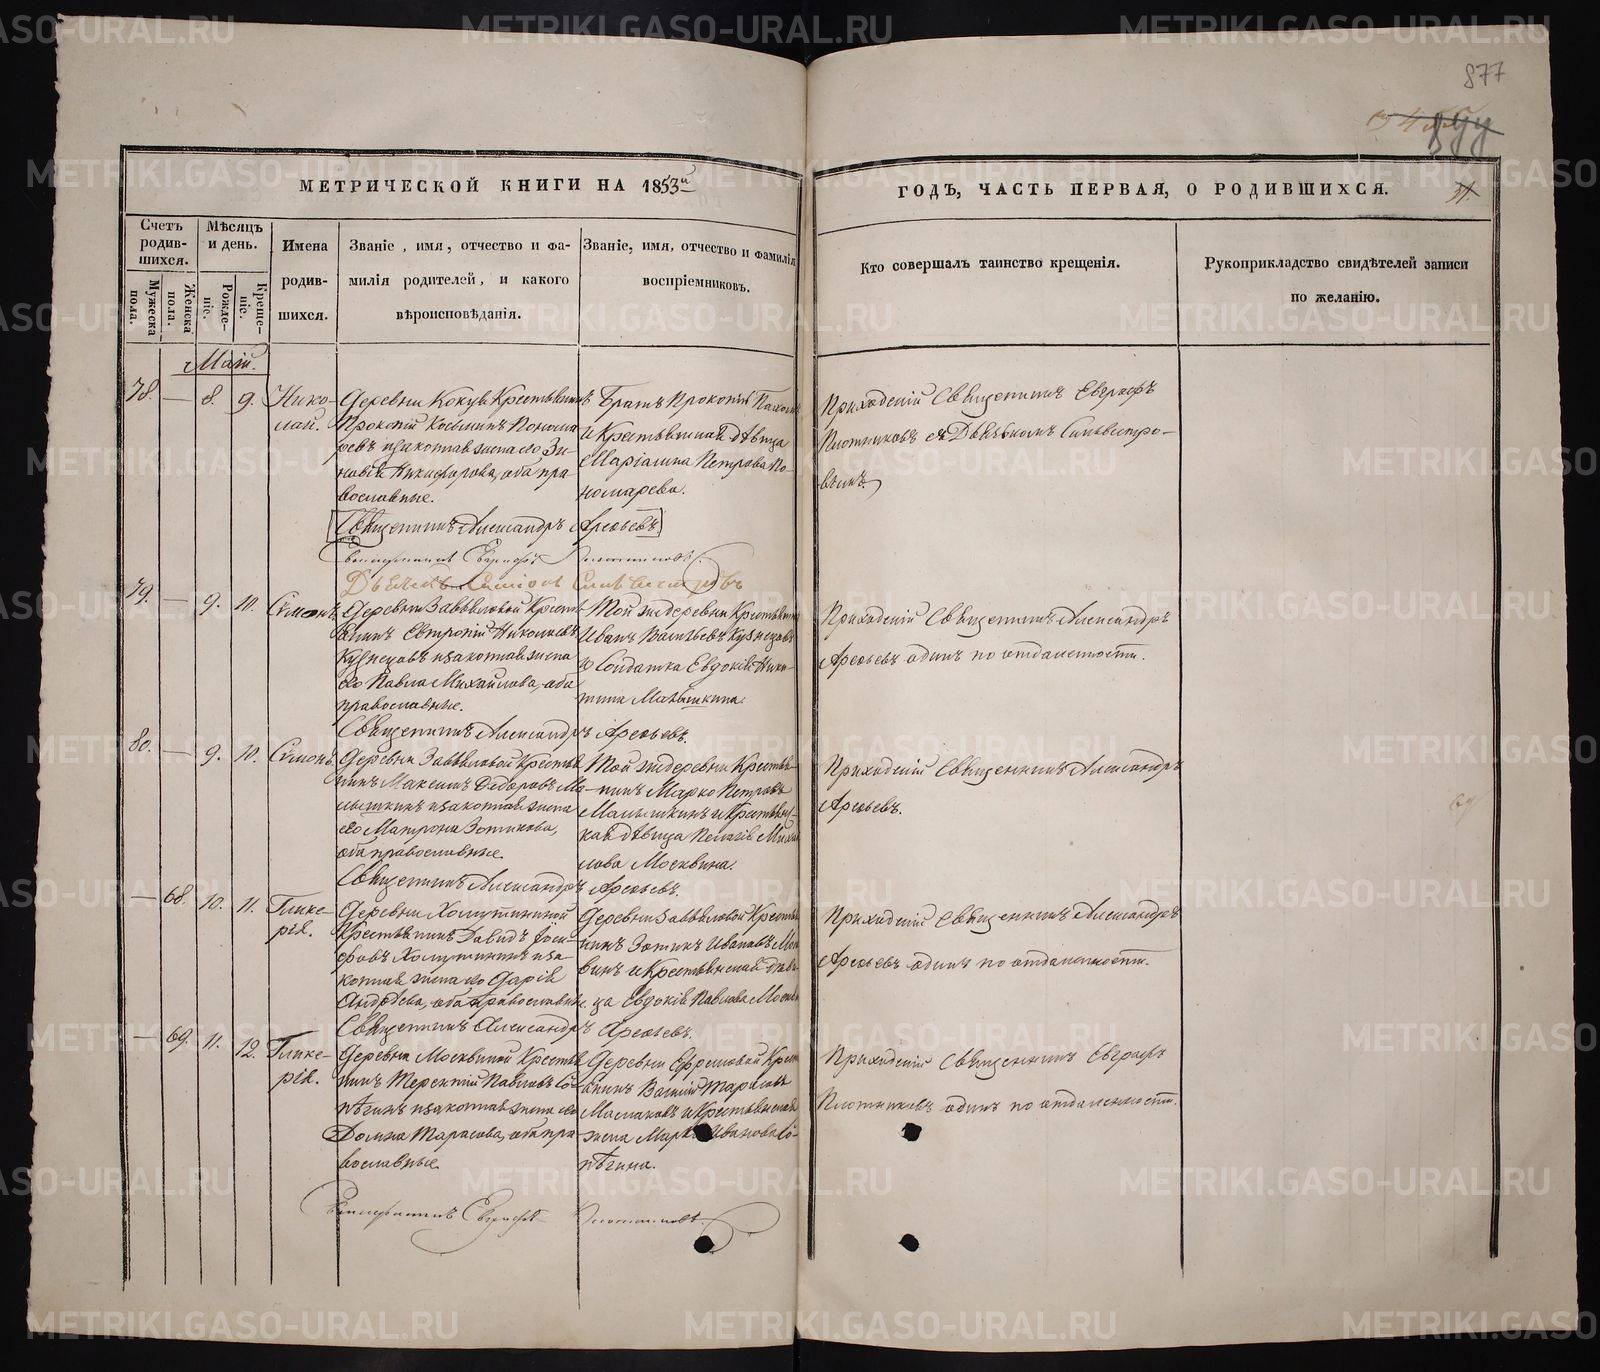 877
МЕТРИЧЕСКОЙ КНИГИ НА 1853й
ГОДЪ, ЧАСТЬ ПЕРВАЯ, О РОДИВШИХСЯ.
Счетъ родив-шихся.
Мужеска пола.
Женска пола.
Мѣсяцъ и день.
Рожде-нiе.
Креще-нiе.
Имена родив-шихся.
Званіе, имя, отчество и фа-
милія родителей, и какого
вѣроисповѣданія.
Званіе, имя, отчество и фамилія
воспріемниковъ.
Кто совершалъ таинство крещенія.
Рукоприкладство свидѣтелей записи
по желанію.
Маій.
78. — 8. 9. Нико-
лай.
Деревни Кокуя Крестьянинъ
Прокопій Косминъ Понома-
ревъ и законная жена его Зи-
новія Никифорова, оба пра-
вославные.
Братъ Прокопій
и Крестьянская дѣвица
Маріанна Петрова По-
номарева.
Приходскій Священникъ Евграфъ
Плотниковъ съ Дьячкомъ Сильвестро-
вымъ.
Священникъ Александръ Арефьевъ
Священникъ Евграфъ Плотниковъ.
Дьячекъ Симіонъ Сильвестровъ
79. — 9. 10. Симонъ.
Деревни Завьяловой Кресть-
янинъ Евтропій Николаевъ
Кузнецовъ и законная жена
его Павла Михайлова, оба
православные.
Той же деревни Крестьянинъ
Иванъ Васильевъ Кузнецовъ
и Солдатка Евдокія Ники-
тина Малышкина.
Приходскій Священникъ Александръ
Арефьевъ одинъ по отдаленности.
Священникъ Александръ Арефьевъ.
80. — 9. 10. Симонъ.
Деревни Завьяловой Крестья-
нинъ Максимъ Ѳедоровъ Ма-
лышкинъ и законная жена
его Матрона Зотикова,
оба православные.
Той же деревни Крестья-
нинъ Марко Петровъ
Малышкинъ и Крестьянс-
кая дѣвица Пелагія Михай
лова Москвина.
Приходскій Священникъ Александръ
Арефьевъ.
Священникъ Александръ Арефьевъ.
— 68. 10. 11. Глике-
рія.
Деревни Холуткиной
Крестьянинъ Давидъ Іоси-
фовъ и за-
конная жена его Дарія
Андреева, оба православные.
Деревни Завьяловой Крестья
нинъ Зотикъ Ивановъ Моск
винъ и Крестьянская дѣви-
ца Евдокія Павлова Москвин
Приходскій Священникъ Александръ
Арефьевъ одинъ по отдаленности.
Священникъ Александръ Арефьевъ.
— 69. 11. 12. Глике-
рія.
Деревни Москвиной Крестья
нинъ Терентій Павловъ Со-
пѣгинъ и законная жена его
Домна Тарасова, оба пра-
вославные.
Деревни Ефремовой Крест
янинъ Василій Тарасовъ
Маслаковъ и Крестьянская
жена Ма Иванова Со-
пѣгина.
Приходскій Священникъ Евграфъ
Плотниковъ одинъ по отдаленности.
Священникъ Евграфъ Плотниковъ.
METRIKI.GASO-URAL.RU